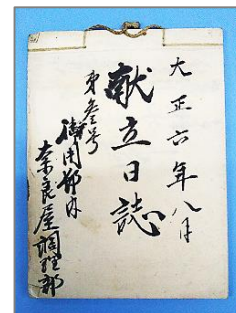 大正六年八月
献立日誌
第参号
御用部内
奈良屋調理部